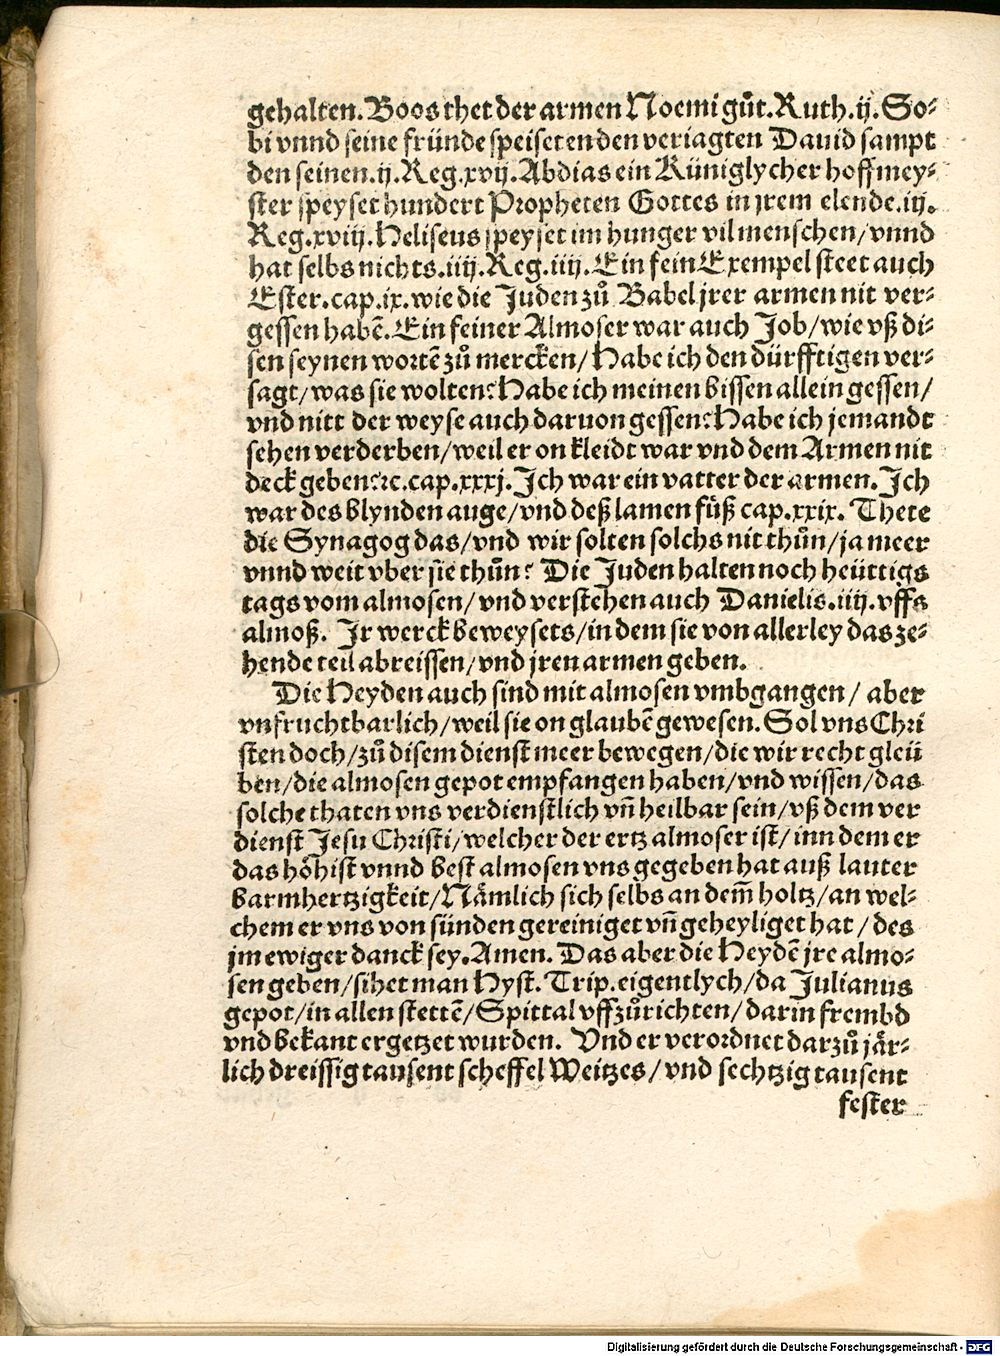 gehalten. Boos thet der armen Noemi gůt. Ruth. ij. So⸗
bi vnnd seine fründe speiseten den veriagten Dauid sampt
den seinen. ij. Reg. xvij. Abdias ein Küniglycher hoffmey⸗
ster speyset hundert Propheten Gottes in jrem elende. iij.
Reg. xviij. Heliseus speyset im hunger vil menschen / vnnd
hat selbs nichts. iiij. Reg. iiij. Ein fein Exempel steet auch
Ester. cap. ix. wie die Juden zů Babel jrer armen nit ver⸗
gessen habē. Ein feiner Almoser war auch Job / wie vß di⸗
sen seynen wortē zů mercken / Habe ich den dürfftigen ver⸗
sagt / was sie wolten? Habe ich meinen bissen allein gessen /
vnd nitt der weyse auch daruon gessen? Habe ich jemandt
sehen verderben / weil er on kleidt war vnd dem Armen nit
deck geben? ꝛc. cap. xxxj. Ich war ein vatter der armen. Ich
war des blynden auge / vnd deß lamen füß cap. xxix. Thete
die Synagog das / vnd wir solten solchs nit thůn / ja meer
vnnd weit vber sie thůn? Die Juden halten noch heüttigs
tags vom almosen / vnd verstehen auch Danielis. iiij. vffs
almoß. Jr werck beweysets / in dem sie von allerley das ze⸗
hende teil abreissen / vnd jren armen geben.
Die Heyden auch sind mit almosen vmbgangen / aber
vnfruchtbarlich / weil sie on glaubē gewesen. Sol vns Chri
sten doch / zů disem dienst meer bewegen / die wir recht gleü
ben / die almosen gepot empfangen haben / vnd wissen / das
solche thaten vns verdienstlich vn̄ heilbar sein / vß dem ver
dienst Jesu Christi / welcher der ertz almoser ist / inn dem er
das höhist vnnd best almosen vns gegeben hat auß lauter
barmhertzigkeit / Nämlich sich selbs an dem̄ holtz / an wel⸗
chem er vns von sünden gereiniget vn̄ geheyliget hat / des
jm ewiger danck sey. Amen. Das aber die Heydē jre almo⸗
sen geben / sihet man Hyst. Trip. eigentlych / da Julianus
gepot / in allen stettē / Spittal vffzůrichten / darin frembd
vnd bekant ergetzet wurden. Vnd er verordnet darzů jär⸗
lich dreissig tausent scheffel Weitzes / vnd sechtzig tausent
fester
Digitalisierung gefördert durch die Deutsche Forschungsgemeinschaft - DFG